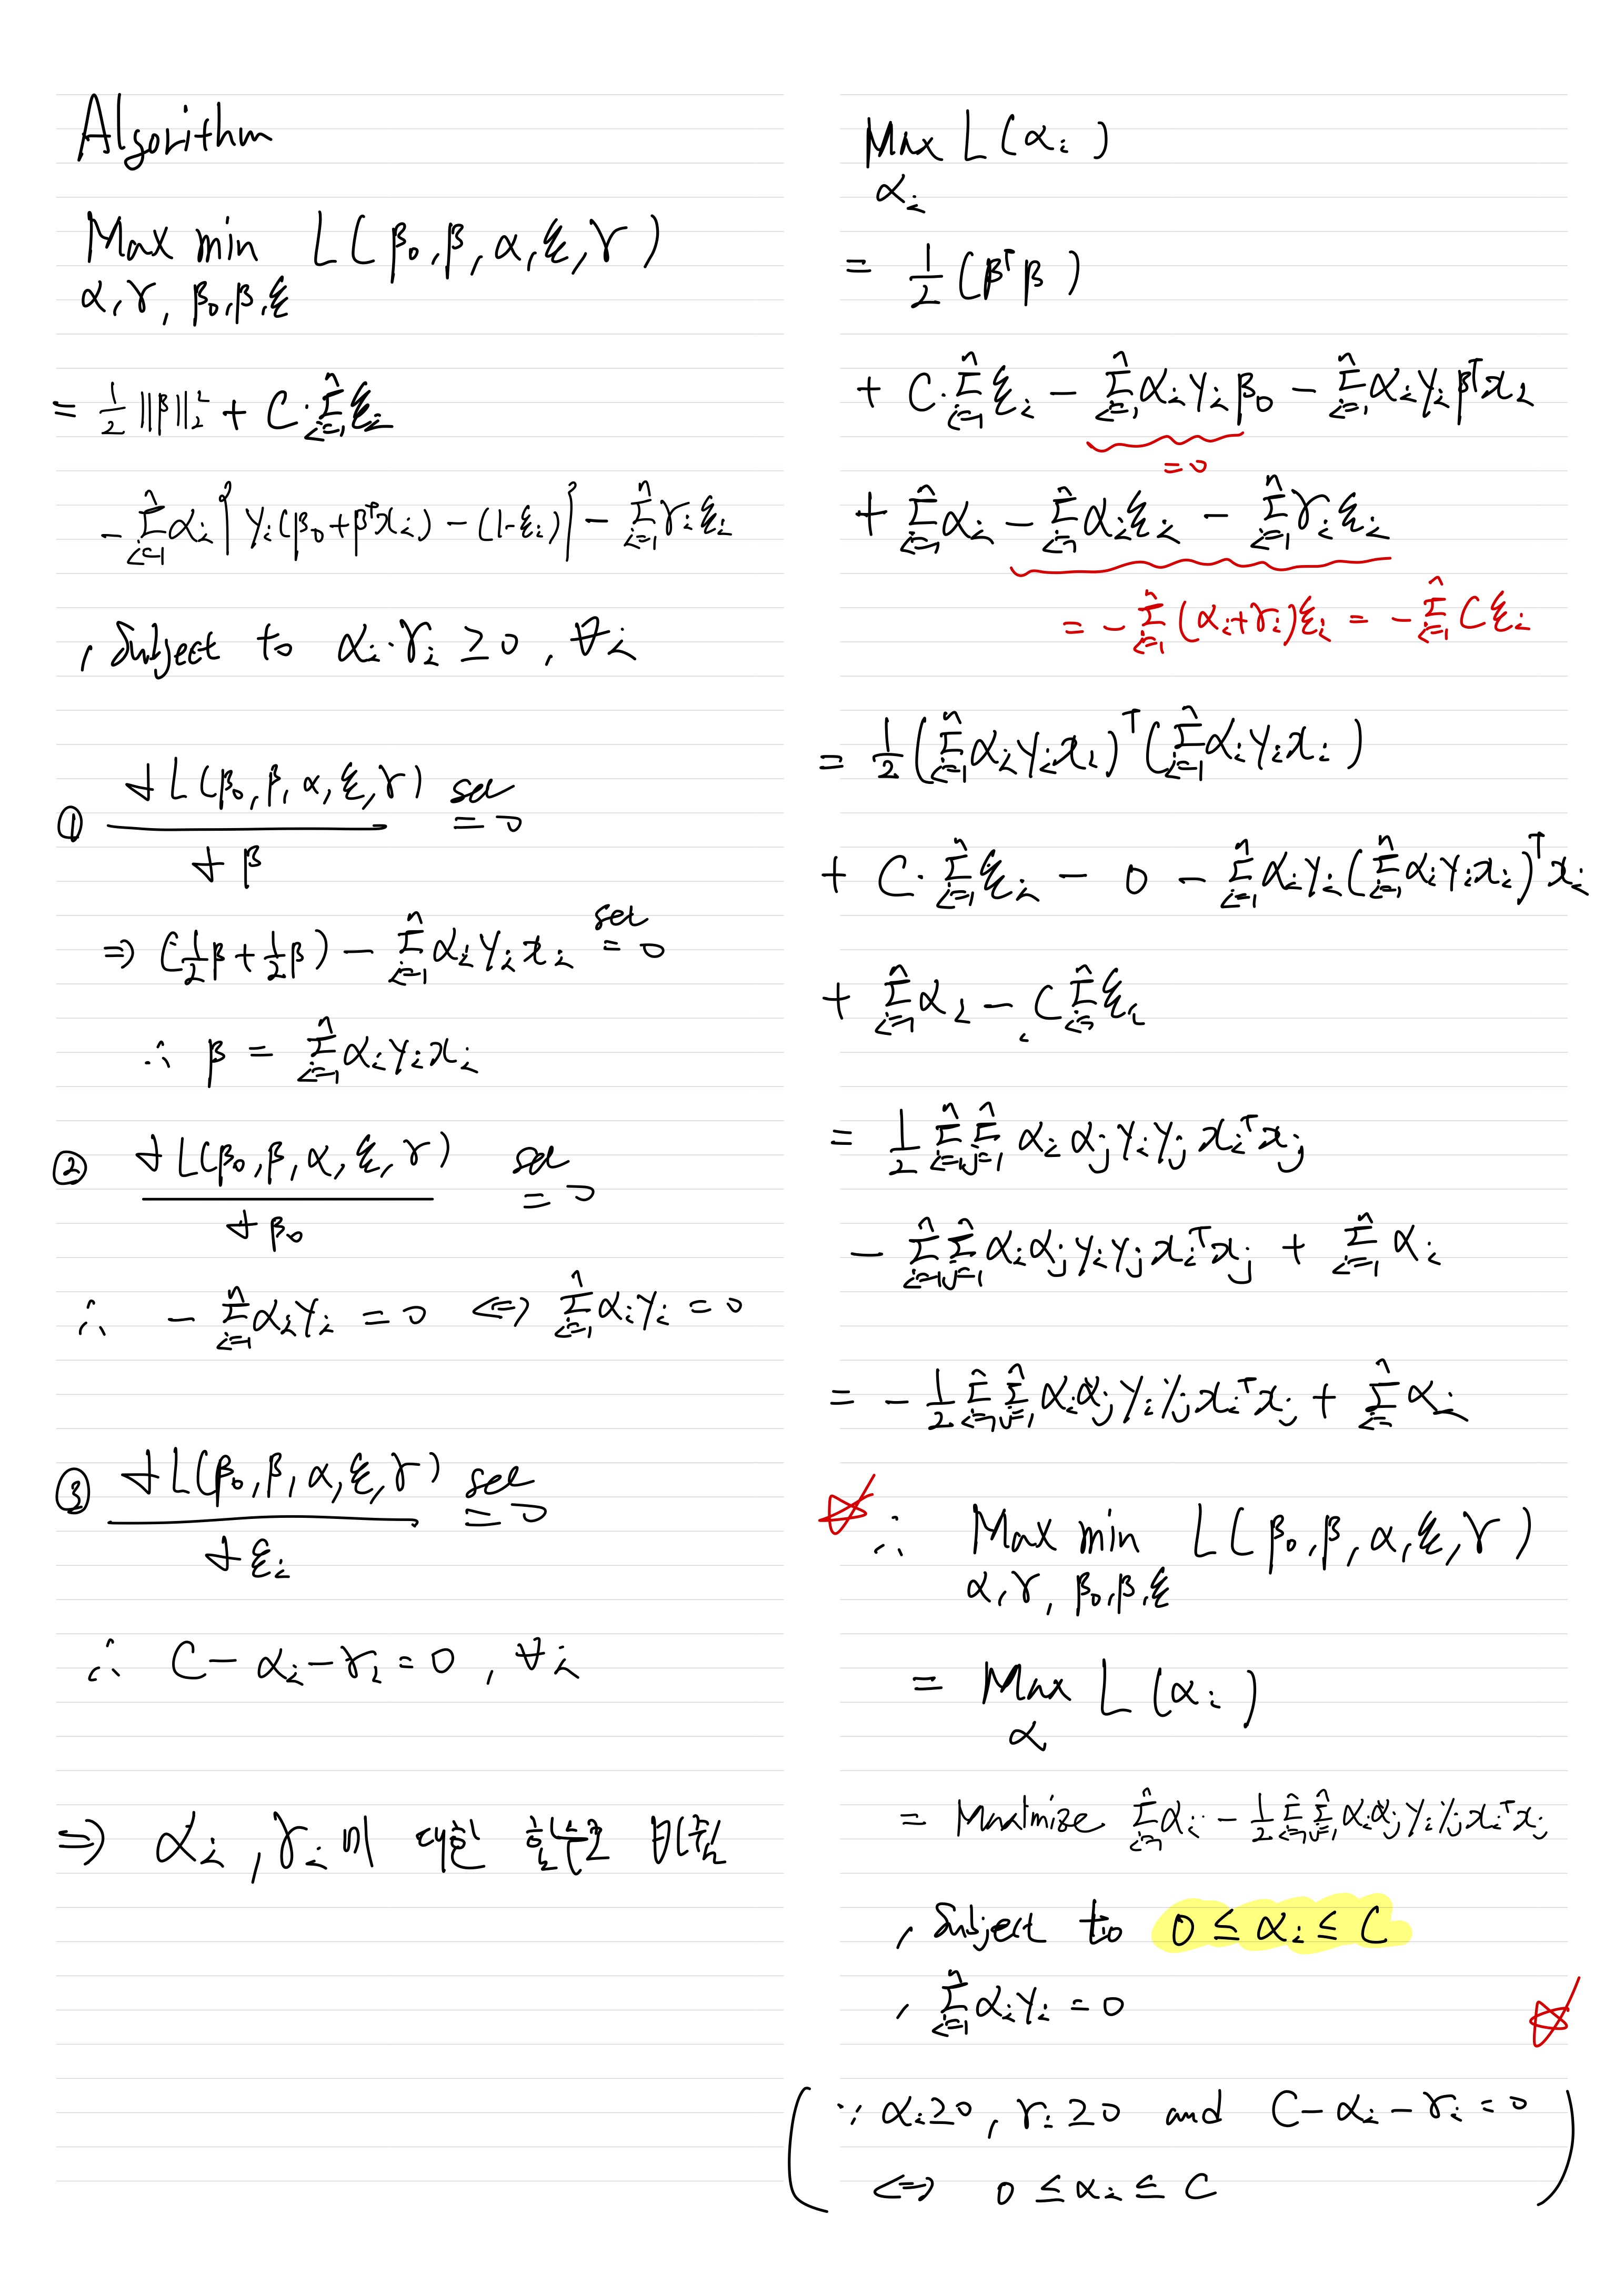 Algorithm
Max min L(β₀, β, α, ξ, γ)
α, γ, β₀, β, ξ
= 1/2 ||β||₂² + C·Σᵢ₌₁ⁿ ξᵢ
- Σᵢ₌₁ⁿ αᵢ { yᵢ(β₀+βᵀxᵢ) - (1-ξᵢ) } - Σᵢ₌₁ⁿ γᵢξᵢ
, Subject to αᵢ·γᵢ ≥ 0, ∀i
① ∂L(β₀, β, α, ξ, γ) / ∂β set = 0
⇒ (1/2 β + 1/2 β) - Σᵢ₌₁ⁿ αᵢyᵢxᵢ set = 0
∴ β = Σᵢ₌₁ⁿ αᵢyᵢxᵢ
② ∂L(β₀, β, α, ξ, γ) / ∂β₀ set = 0
∴ - Σᵢ₌₁ⁿ αᵢyᵢ = 0 ⇔ Σᵢ₌₁ⁿ αᵢyᵢ = 0
③ ∂L(β₀, β, α, ξ, γ) / ∂ξᵢ set = 0
∴ C - αᵢ - γᵢ = 0, ∀i
⇒ αᵢ, γᵢ에 대한 함수로 바뀜
Max L(αᵢ)
αᵢ
= 1/2 (βᵀβ)
+ C·Σᵢ₌₁ⁿ ξᵢ - Σᵢ₌₁ⁿ αᵢyᵢβ₀ - Σᵢ₌₁ⁿ αᵢyᵢβᵀxᵢ
= 0
+ Σᵢ₌₁ⁿ αᵢ - Σᵢ₌₁ⁿ αᵢξᵢ - Σᵢ₌₁ⁿ γᵢξᵢ
= - Σᵢ₌₁ⁿ (αᵢ+γᵢ)ξᵢ = - Σᵢ₌₁ⁿ Cξᵢ
= 1/2 (Σᵢ₌₁ⁿ αᵢyᵢxᵢ)ᵀ (Σᵢ₌₁ⁿ αᵢyᵢxᵢ)
+ C·Σᵢ₌₁ⁿ ξᵢ - 0 - Σᵢ₌₁ⁿ αᵢyᵢ(Σᵢ₌₁ⁿ αᵢyᵢxᵢ)ᵀxᵢ
+ Σᵢ₌₁ⁿ αᵢ - CΣᵢ₌₁ⁿ ξᵢ
= 1/2 Σᵢ₌₁ⁿ Σⱼ₌₁ⁿ αᵢαⱼyᵢyⱼxᵢᵀxⱼ
- Σᵢ₌₁ⁿ Σⱼ₌₁ⁿ αᵢαⱼyᵢyⱼxᵢᵀxⱼ + Σᵢ₌₁ⁿ αᵢ
= - 1/2 Σᵢ₌₁ⁿ Σⱼ₌₁ⁿ αᵢαⱼyᵢyⱼxᵢᵀxⱼ + Σᵢ₌₁ⁿ αᵢ
☆ ∴ Max min L(β₀, β, α, ξ, γ)
α, γ, β₀, β, ξ
= Max L(αᵢ)
α
= Maximize Σᵢ₌₁ⁿ αᵢ - 1/2 Σᵢ₌₁ⁿ Σⱼ₌₁ⁿ αᵢαⱼyᵢyⱼxᵢᵀxⱼ
, Subject to 0 ≤ αᵢ ≤ C
, Σᵢ₌₁ⁿ αᵢyᵢ = 0 ☆
( ∵ αᵢ ≥ 0, γᵢ ≥ 0 and C - αᵢ - γᵢ = 0
⇔ 0 ≤ αᵢ ≤ C )